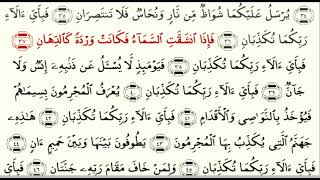 ٣٤ يُرْسَلُ عَلَيْكُمَا شُوَاظٌ مِّن نَّارٍ وَنُحَاسٌ فَلَا تَنتَصِرَانِ ٣٥ فَبِأَيِّ ءَالَآءِ
رَبِّكُمَا تُكَذِّبَانِ ٣٦ فَإِذَا ٱنشَقَّتِ ٱلسَّمَآءُ فَكَانَتْ وَرْدَةً كَٱلدِّهَانِ ٣٧
فَبِأَيِّ ءَالَآءِ رَبِّكُمَا تُكَذِّبَانِ ٣٨ فَيَوْمَئِذٍ لَّا يُسْـَٔلُ عَن ذَنۢبِهِۦٓ إِنسٌ وَلَا
جَآنٌّ ٣٩ فَبِأَيِّ ءَالَآءِ رَبِّكُمَا تُكَذِّبَانِ ٤٠ يُعْرَفُ ٱلْمُجْرِمُونَ بِسِيمَٰهُمْ
فَيُؤْخَذُ بِٱلنَّوَٰصِى وَٱلْأَقْدَامِ ٤١ فَبِأَيِّ ءَالَآءِ رَبِّكُمَا تُكَذِّبَانِ ٤٢ هَٰذِهِۦ
جَهَنَّمُ ٱلَّتِى يُكَذِّبُ بِهَا ٱلْمُجْرِمُونَ ٤٣ يَطُوفُونَ بَيْنَهَا وَبَيْنَ حَمِيمٍ ءَانٍ ٤٤
فَبِأَيِّ ءَالَآءِ رَبِّكُمَا تُكَذِّبَانِ ٤٥ وَلِمَنْ خَافَ مَقَامَ رَبِّهِۦ جَنَّتَانِ ٤٦ فَبِأَيِّ